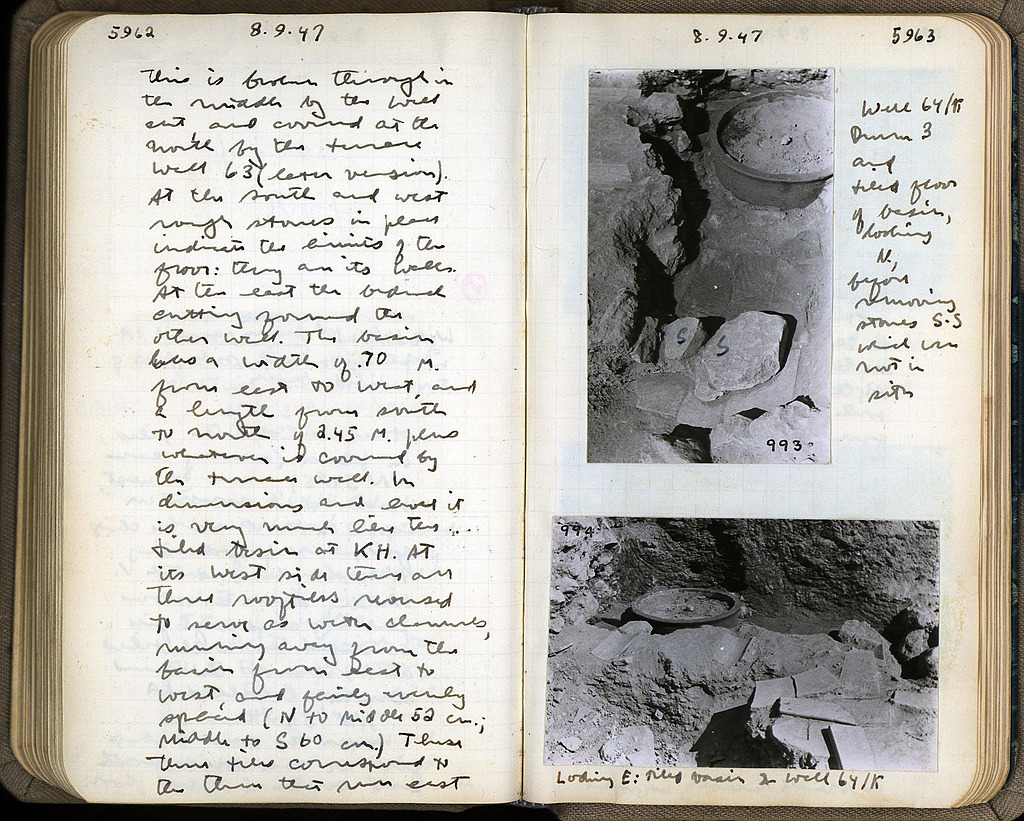 5962
8.9.47
This is broken through in
the middle by the well
cut, and covered at the
north by the terrace
wall 63 (later version).
At the south and west
rough stones in place
indicate the limits of the
floor: they are its walls.
At the east the
cutting
other well. The basin
has a width of .70 M.
from east to west, and
a length from south
to north of 2.45 M. plus
whatever is covered by
the terrace wall. In
dimensions and level it
is very much like the
tiled basin at KH. At
its west side there are
three rooftiles reused
to serve as water channels,
running away from the
basin from east to
west, and fairly evenly
spaced (N to middle 52 cm.;
middle to S 60 cm.) These
three tiles correspond to
the three that run east
8.9.47
5963
Well 64/K
Drum 3
and
tiled floor
of basin,
looking
N,
before
removing
stones S-S
which were
not in
situ
S
S
993
994
Looking E: tiled basin & well 64/K